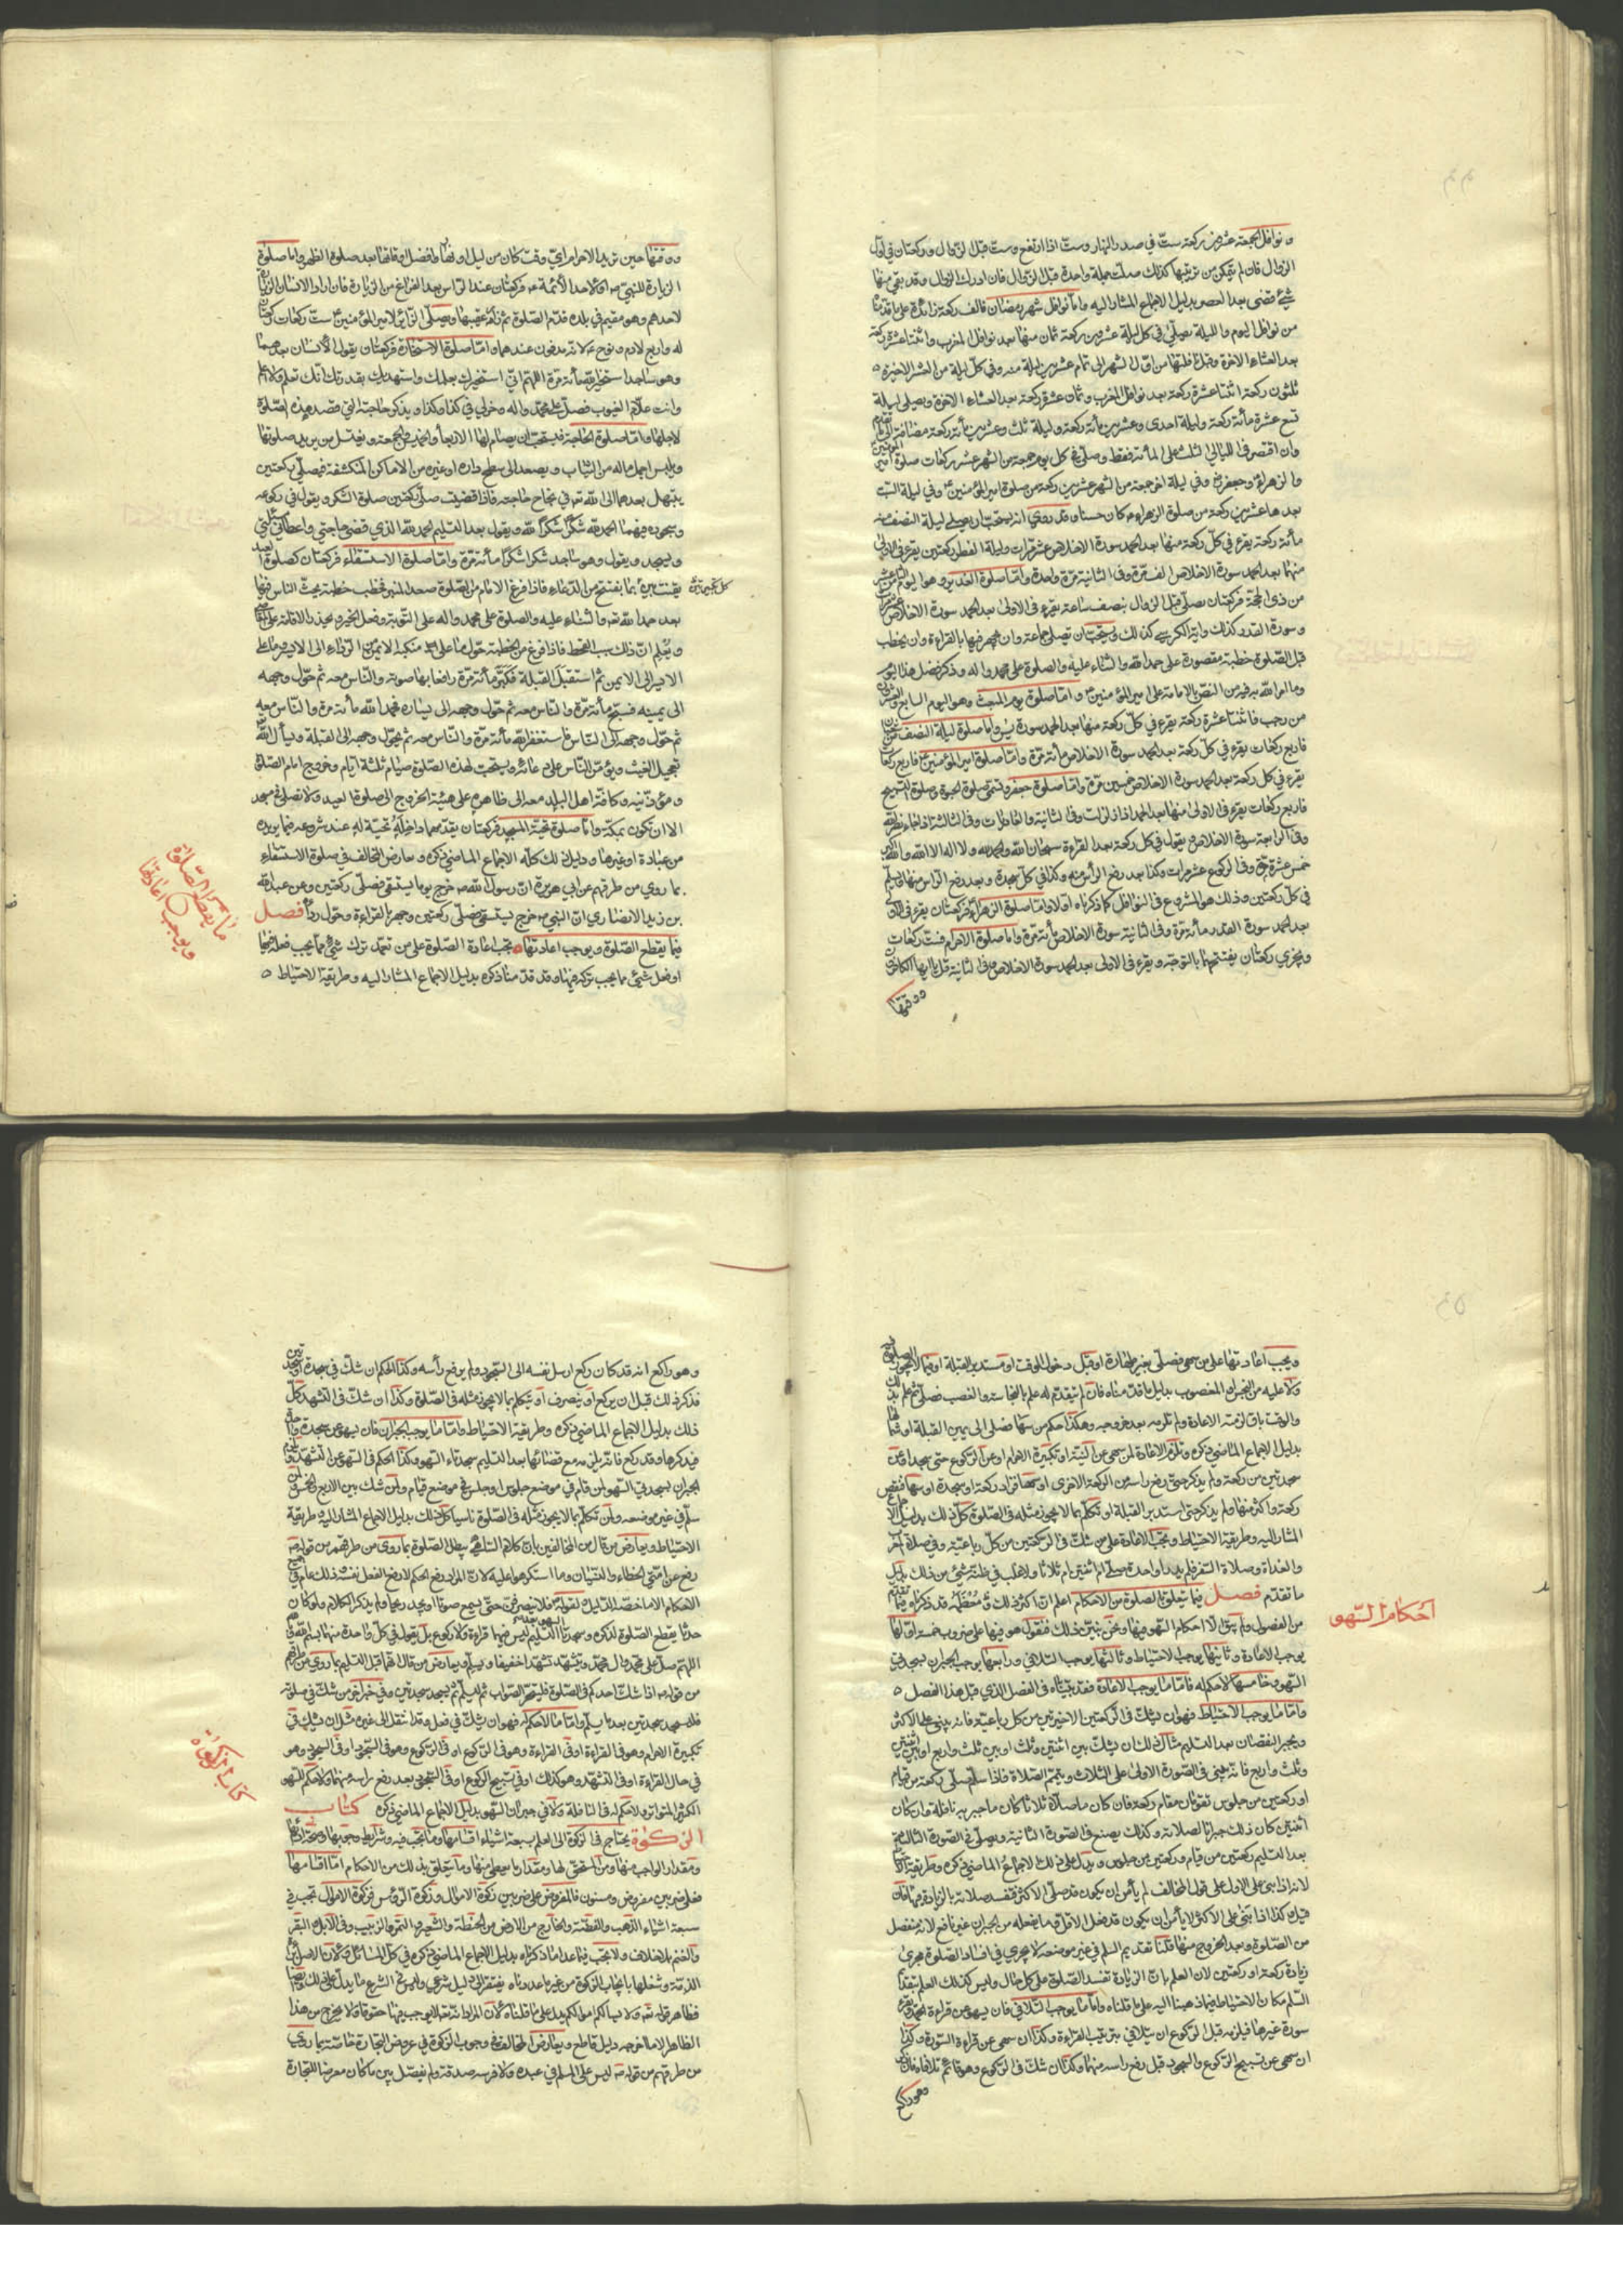 ونوافل الجمعة عشرون ركعة ست في صدر النهار وست اذا ارتفع وست قبل الزوال وركعتان في اول
الزوال فان لم يتمكن من ترتيبها كذلك صلّيت جملة واحدة قبل الزوال فان ادرك الزوال وقد بقي منها
شئ قضى بعد العصر بدليل الاجماع المشار اليه واما نوافل شهر رمضان فالف ركعة زائدة على ما قدمنا
من نوافل اليوم والليلة يصلي في كل ليلة عشرين ركعة ثمان منها بعد نوافل المغرب واثنتا عشرة ركعة
بعد العشاء الاخرة وقبل نافلتها من اول الشهر الى تمام عشرين ليلة منه وفي كل ليلة من العشر الاخيرة
ثلثون ركعة اثنتا عشرة ركعة بعد نوافل المغرب وثمان عشرة ركعة بعد العشاء الاخرة ويصلي ليلة
تسع عشرة مأئة ركعة وليلة احدى وعشرين مأئة ركعة وليلة ثلث وعشرين مأئة ركعة مضافة الى ما تقدم
وان اقتصر في الليالي الثلث على المأئة فقط وصلّى في كل يوم جمعة من الشهر عشر ركعات صلوة امير المؤمنين
والزهراء وجعفر وفي ليلة اخر جمعة من الشهر عشرين ركعة من صلوة امير المؤمنين وفي ليلة السبت
بعدها عشرين ركعة من صلوة الزهراء كان حسنا وقد روي انه يستحب ان يصلي ليلة النصف منه
مأئة ركعة يقرء في كل ركعة منها بعد الحمد سورة الاخلاص عشر مرات وليلة الفطر ركعتين يقرء في الاولى
منهما بعد الحمد سورة الاخلاص الف مرة وفي الثانية مرة واحدة واما صلوة الغدير وهو اليوم الثامن عشر
من ذي الحجة فركعتان يصلي قبل الزوال بنصف ساعة يقرء في الاولى بعد الحمد سورة الاخلاص عشرا
وسورة القدر كذلك واية الكرسي كذلك ويستحب ان تصلي جماعة وان يجهر فيها بالقراءة وان يخطب
قبل الصلوة خطبة مقصورة على حمد الله والثناء عليه والصلوة على محمد واله وذكر فضل هذا اليوم
وما امر الله به فيه من النص بالامامة على امير المؤمنين واما صلوة يوم المبعث وهو اليوم السابع والعشرون
من رجب فاثنتا عشرة ركعة يقرء في كل ركعة منها بعد الحمد سورة يس واما صلوة ليلة النصف من شعبان
فاربع ركعات يقرء في كل ركعة بعد الحمد سورة الاخلاص مأئة مرة واما صلوة امير المؤمنين فاربع ركعات
يقرء في كل ركعة بعد الحمد سورة الاخلاص خمسين مرة واما صلوة جعفر وتسمى صلوة الحبوة وصلوة التسبيح
فاربع ركعات يقرء في الاولى منها بعد الحمد اذا زلزلت وفي الثانية والعاديات وفي الثالثة اذا جاء نصر الله
وفي الرابعة سورة الاخلاص ويقول في كل ركعة بعد القراءة سبحان الله والحمد لله ولا اله الا الله والله اكبر
خمس عشرة مرة وفي الركوع عشر مرات وكذا بعد رفع الرأس منه وكذا في كل سجدة وبعد رفع الراس منها ويسلم
في كل ركعتين وذلك هو المشروع في النوافل كما ذكرناه اولا واما صلوة الزهراء فركعتان يقرء في الاولى
بعد الحمد سورة القدر مأئة مرة وفي الثانية سورة الاخلاص مأئة مرة واما صلوة الاحرام فست ركعات
ويجزي ركعتان يفتتحهما بالتوجه ويقرء في الاولى بعد الحمد سورة الاخلاص وفي الثانية قل يا ايها الكافرون
ووقتها
ووقتها حين يريد الاحرام اي وقت كان من ليل او نهار وافضل اوقاتها بعد صلوة الظهر واما صلوة
الزيارة للنبي ص او لاحد الأئمة ع فركعتان عند الراس بعد الفراغ من الزيارة فان اراد الانسان الزيارة
لاحدهم وهو مقيم في بلده قدم الصلوة ثم زاره عقيبها ويصلي الزائر لامير المؤمنين ست ركعات ركعتان
له واربع لادم ونوح ع لانه مدفون عندهما واما صلوة الاستخارة فركعتان يقول الانسان بعدهما
وهو ساجد استخير الله مأئة مرة اللهم اني استخيرك بعلمك واستهديك بقدرتك انك تعلم ولا اعلم
وانت علام الغيوب فصل على محمد واله وخر لي في كذا وكذا ويذكر حاجته التي قصد هذه الصلوة
لاجلها واما صلوة الحاجة فيستحب ان يصام لها الاربعاء والخميس والجمعة ويغتسل من يريد صلوتها
ويلبس اجمل ماله من الثياب ويصعد الى سطح داره او غيره من الاماكن المنكشفة فيصلي ركعتين
يبتهل بعدهما الى الله تعالى في نجاح حاجته فاذا قضيت صلى ركعتين صلوة الشكر ويقول في ركوعه
وسجوده فيهما الحمد لله شكرا شكرا لله ويقول بعد التسليم الحمد لله الذي قضى حاجتي واعطاني مسئلتي
ويسجد ويقول وهو ساجد شكرا شكرا مأئة مرة واما صلوة الاستسقاء فركعتان كصلوة العيد
يقنت بين كل تكبيرتين بما يفتتح من الدعاء فاذا فرغ الامام من الصلوة صعد المنبر فخطب خطبة يحث الناس فيها
بعد حمد الله تعالى والثناء عليه والصلوة على محمد واله على التوبة وفعل الخير ويحذر الاقامة على المعاصي
ويعلم ان ذلك سبب القحط فاذا فرغ من الخطبة حول ما على منكبه الايمن من الرداء الى الايسر وما على
الايسر الى الايمن ثم استقبل القبلة فكبر مأئة مرة رافعا بها صوته والناس معه ثم حول وجهه
الى يمينه فسبح مأئة مرة والناس معه ثم حول وجهه الى يساره فحمد الله مأئة مرة والناس معه
ثم حول وجهه الى الناس فاستغفر الله مأئة مرة والناس معه ثم يحول وجهه الى القبلة ويسأل الله
تعجيل الغيث ويؤمن الناس على دعائه ويستحب لهذه الصلوة صيام ثلثة ايام وخروج امام الصلوة
ومؤذنيه وكافة اهل البلد معه الى ظاهره على هيئة الخروج الى صلوة العيد ولا تصلى في مسجد
الا ان تكون بمكة واما صلوة تحية المسجد فركعتان يقدمهما داخله تحية له عند شروعه فيما يريده
من عبادة او غيرها ودليل ذلك كله الاجماع الماضي ذكره ويعارض المخالف في صلوة الاستسقاء
بما روي من طرقهم عن ابي هريرة ان رسول الله ص خرج يوما يستسقى فصلى ركعتين وعن عبد الله
بن زيد الانصاري ان النبي ص خرج يستسقى فصلى ركعتين وجهر بالقراءة وحول رداءه فصل
فيما يقطع الصلوة ويوجب اعادتها يجب اعادة الصلوة على من تعمد ترك شئ مما يجب فعله فيها
او فعل شئ مما يجب تركه فيها وقد قدمنا ذكره بدليل الاجماع المشار اليه وطريقة الاحتياط
ما يقطع الصلوة
ويوجب اعادتها
ويجب اعادتها على من سهى فصلى بغير طهارة او قبل دخول الوقت او مستدبر القبلة او فيما لا يجوز الصلوة فيه
ولا عليه من النجس او المغصوب بدليل ما قدمناه فان لم يتقدم له علم بالنجاسة والغصب فصلى ثم علم بذلك
والوقت باق لزمته الاعادة ولم تلزمه بعد خروجه وهكذا حكم من سها فصلى الى يمين القبلة او شمالها
بدليل الاجماع الماضي ذكره وتلزم الاعادة لمن سهى عن النية او تكبيرة الاحرام او عن الركوع حتى سجد او عن
سجدتين من ركعة ولم يذكر حتى رفع راسه من الركعة الاخرى او سها فزاد ركعة او سجدة او سها فنقص
ركعة واكثر منها ولم يذكر حتى استدبر القبلة او تكلم بما لا يجوز مثله في الصلوة كل ذلك بدليل الاجماع
المشار اليه وطريقة الاحتياط ويجب الاعادة على من شك في الركعتين من كل رباعية وفي صلاة المغرب
والغداة وصلاة السفر فلم يدر أواحدة صلى ام اثنتين ام ثلاثا ولا غلب في ظنه شئ من ذلك بدليل
ما تقدم فصل فيما يتعلق بالصلوة من الاحكام اعلم ان اكثر ذلك ومعظمه قد ذكرناه فيما تقدم
من الفصول ولم يبق الا احكام السهو فيها ونحن نبين ذلك فنقول هو فيها على ضروب خمسة اولها
يوجب الاعادة وثانيها يوجب الاحتياط وثالثها يوجب التلافي ورابعها يوجب الجبران بسجدتي
السهو وخامسها لا حكم له فاما ما يوجب الاعادة فقد بيناه في الفصل الذي قبل هذا الفصل
واما ما يوجب الاحتياط فهو ان يشك في الركعتين الاخيرتين من كل رباعية فانه يبنى على الاكثر
ويجبر النقصان بعد التسليم مثال ذلك ان يشك بين اثنتين وثلث او بين ثلث واربع او بين اثنتين
وثلث واربع فانه يبنى في الصورة الاولى على الثلاث ويتمم الصلاة فاذا سلم صلى ركعة من قيام
او ركعتين من جلوس تقومان مقام ركعة فان كان ما صلاه ثلاثا كان ما جبر به نافلة وان كان
اثنتين كان ذلك جبرانا لصلاته وكذلك يصنع في الصورة الثانية ويصلي في الصورة الثالثة
بعد التسليم ركعتين من قيام وركعتين من جلوس ويدل على ذلك الاجماع الماضي ذكره وطريقة
لانه اذا بنى على الاول على قول المخالف لم يأمن ان يكون قد صلى الاكثر فتفسد صلاته بالزيادة فيها فان
قيل وكذا اذا بنى على الاكثر لا يأمن ان يكون قد فعل الاقل وما يفعله من الجبران غير نافع لانه منفصل
من الصلوة وبعد الخروج منها قلنا تقديم السلم في غير موضعه لا يجري في افساد الصلوة مجرى
زيادة ركعة او ركعتين لان العلم بان الزيادة تفسد الصلوة على كل حال وليس كذلك العلم بتقديم
السلم فكان الاحتياط فيما ذهبنا اليه على ما قلناه واما ما يوجب التلافي فان يسهو عن قراءة الحمد
سورة غيرها فيلزمه قبل الركوع ان يتلافي بترتيب القراءة وكذا ان سهى عن قراءة السورة وكذا
ان سهى عن تسبيح الركوع والسجود قبل رفع راسه منهما وكذا ان شك في الركوع وهو قائم تلافاه فان
وهو راكع
احكام السهو
وهو راكع انه قد كان ركع ارسل نفسه الى السجود ولم يرفع رأسه وكذا الحكم ان شك في سجدة او سجدتين
فذكر ذلك قبل ان يركع او ينصرف او يتكلم بما لا يجوز مثله في الصلوة وكذا ان شك في التشهد كل
ذلك بدليل الاجماع الماضي ذكره وطريقة الاحتياط واما ما يوجب الجبران فان يسهو عن سجدة واحدة
فيذكرها وقد ركع فانه يلزمه مع قضائها بعد التسليم سجدتا السهو وكذا الحكم في السهو عن التشهد
الجبران بسجدتي السهو لمن قام في موضع جلوس او جلس في موضع قيام ولمن شك بين الاربع والخمس ولمن
سلم في غير موضعه ولمن تكلم بما لا يجوز مثله في الصلوة ناسيا كل ذلك بدليل الاجماع المشار اليه وطريقة
الاحتياط ويعارض من قال من المخالفين بان كلام الساهي يبطل الصلوة بما روي من طرقهم من قوله ص
رفع عن امتي الخطاء والنسيان وما استكرهوا عليه لان المراد رفع الحكم لا رفع الفعل نفسه وذلك عام في جميع
الاحكام الا ما خصه الدليل وقوله فلا ينصرفن حتى يسمع صوتا او يجد ريحا ولم يذكر الكلام ولو كان
حدثا يقطع الصلوة لذكره وسجدتا السهو بعد التسليم ليس فيهما قراءة ولا ركوع بل يقول في كل واحدة منهما بسم الله وبالله
اللهم صل على محمد وال محمد ويتشهد تشهدا خفيفا ويسلم ويعارض من قال انهما قبل التسليم بما روي من طرقهم
من قوله ص اذا شك احدكم في الصلوة فليتحر الصواب ثم ليسلم ثم يسجد سجدتين وفي خبر اخر من شك في صلوته
فليسجد سجدتين بعد ما يسلم واما ما لا حكم له فهو ان يشك في فعل وقد انتقل الى غيره مثل ان يشك في
تكبيرة الاحرام وهو في القراءة او في القراءة وهو في الركوع او في الركوع وهو في السجود او في السجود وهو
في حال القراءة او في التشهد وهو كذلك او في تسبيح الركوع او في السجود بعد رفع راسه منهما ولا حكم للسهو
الكثير المتواتر ولا حكم له في النافلة ولا في جبران السهو بدليل الاجماع الماضي ذكره كتاب
الزكوة يحتاج في الزكوة الى العلم بسبعة اشياء اقسامها وما تجب فيه وشرائط وجوبها وصحة ادائها
ومقدار الواجب منها ومن المستحق لها ومقدار ما يعطى منها وما يتعلق بذلك من الاحكام اما اقسامها
فعلى ضربين مفروض ومسنون فالمفروض على ضربين زكوة الاموال وزكوة الرؤس فزكوة الاموال تجب في
سبعة اشياء الذهب والفضة والخارج من الارض من الحنطة والشعير والتمر والزبيب وفي الابل والبقر
والغنم بلا خلاف ولا تجب فيما عدا ما ذكرناه بدليل الاجماع الماضي ذكره في كل المسائل ولان الاصل براءة
الذمة وشغلها بايجاب الزكوة من غير ما عددناه يفتقر الى دليل شرعي وليس في الشرع ما يدل على ذلك
فظاهر قوله تعالى ولا يسألكم اموالكم يدل على ما قلناه لان المراد انه تعالى لا يوجب فيها حقوقا ولا يخرج من هذا
الظاهر الا ما اخرجه دليل قاطع ويعارض المخالف في وجوب الزكوة في عروض التجارة خاصة بما روي
من طرقهم من قوله ص ليس على المسلم في عبده ولا فرسه صدقة ولم يفصل بين ما كان معرضا للتجارة
كتاب الزكاة